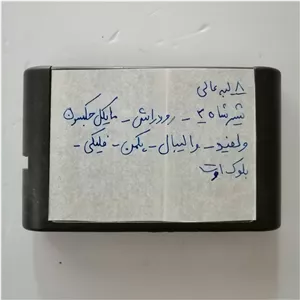 ۸ لبه عالی
شیرشاه ۳ - رودراش - مایکل جکسون
ولفنید - والیبال - پکمن - فلیکی -
بلوک اوت